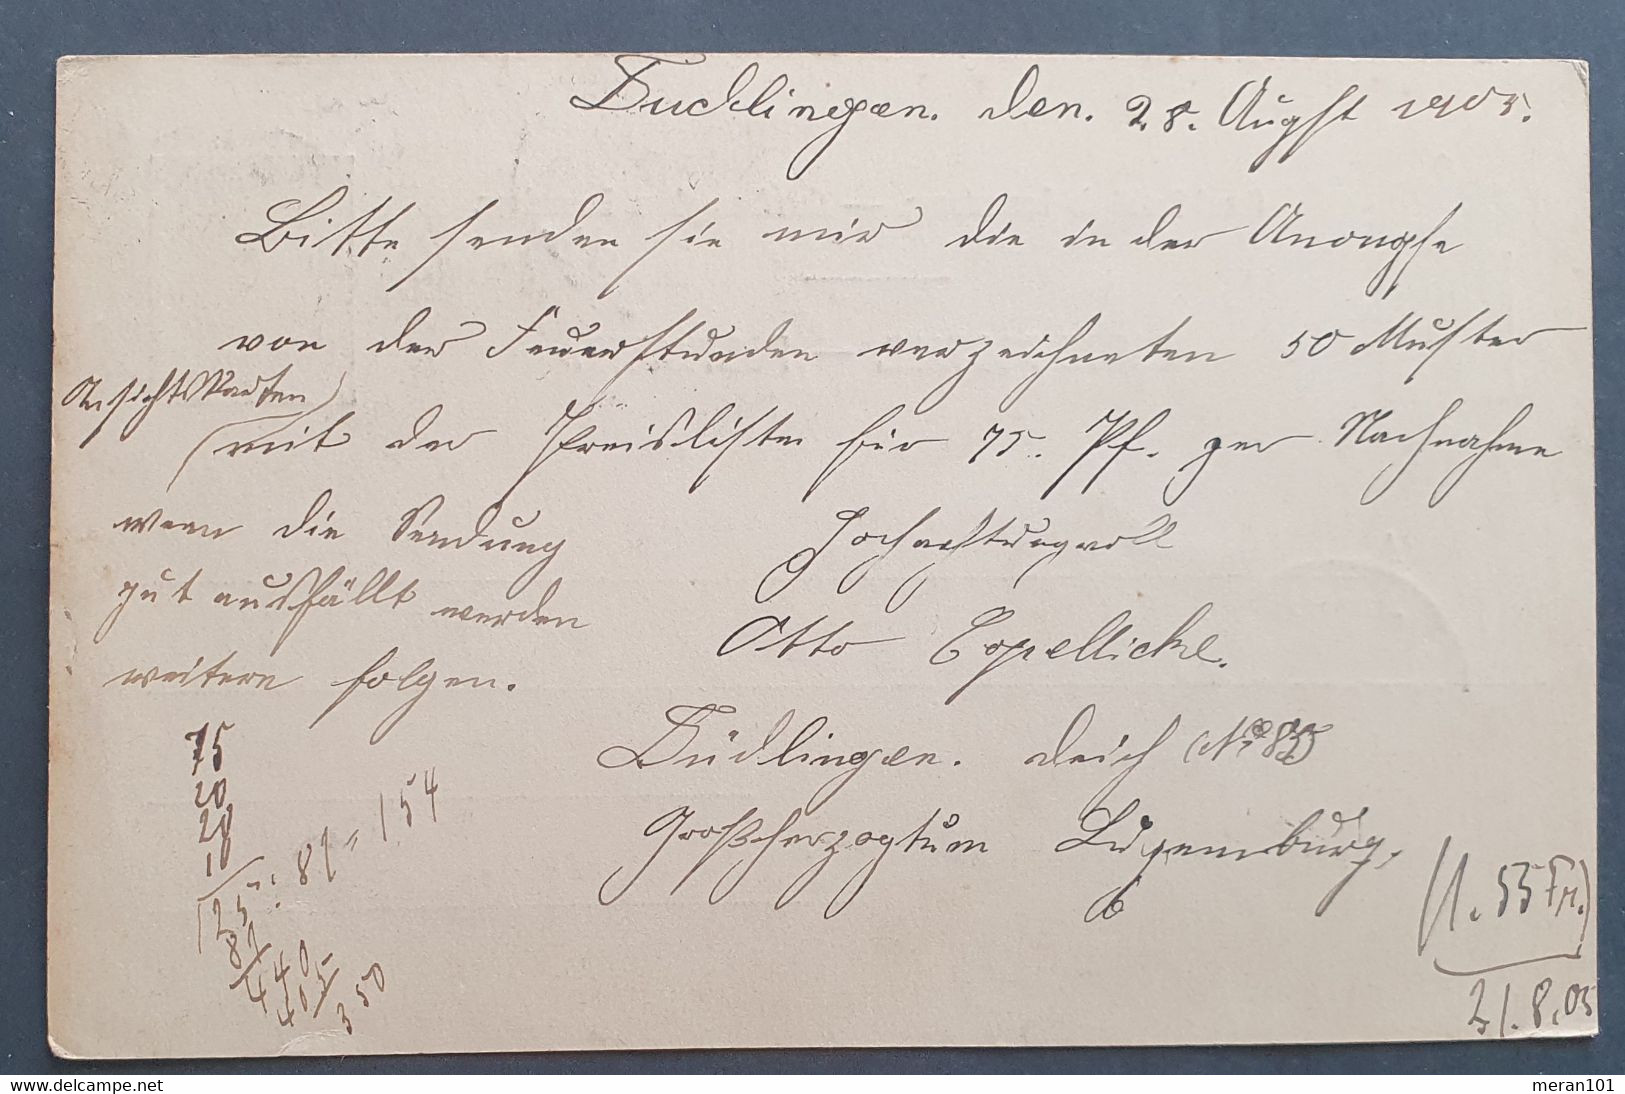 Ducklingen. den. 28. Augst 1905.
Bitte senden sie mir die in der Anongse
von der Feuerstunden verzeichneten 50 Muster
Ansichtskarten
(mit der Preisliste für 75. Pf. per Nachnahme
wenn die Sendung
gut ausfällt werden
weitere folgen.
Hochachtungvoll
Otto Copellicke.
Düdlingen. deich No
Großcherzogtum Luxemburg,
75
20
20
10
125 : 81 = 154
81
440
405
350
(1.55 Fr.)
21.8.05
delcampe.net
meran101